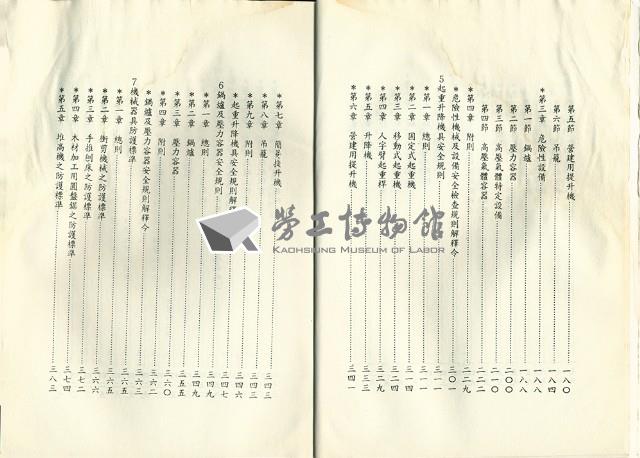 第五節 營建用提升機 一八〇
第六節 吊籠 一八四
*第三章 危險性設備 一八八
第一節 鍋爐 一八八
第二節 壓力容器 二〇〇
第三節 高壓氣體特定設備 二一〇
第四節 高壓氣體容器 二二二
*第四章 附則 二二九
*危險性機械及設備安全檢查規則解釋令 三〇一
5起重升降機具安全規則 三一一
*第一章 總則 三一一
*第二章 固定式起重機 三一四
*第三章 移動式起重機 三二四
*第四章 人字臂起重桿 三二九
*第五章 升降機 三三三
*第六章 營建用提升機 三四一
*第七章 簡易提升機 三四三
*第八章 吊籠 三四三
*第九章 附則 三四六
*起重升降機具安全規則解釋令 三四七
6鍋爐及壓力容器安全規則 三四九
*第一章 總則 三四九
*第二章 鍋爐
*第三章 壓力容器 三五五
*第四章 附則 三六〇
*鍋爐及壓力容器安全規則解釋令 三六二
7機械器具防護標準 三六五
*第一章 總則 三六五
*第二章 衝剪機械之防護標準 三六六
*第三章 手推刨床之防護標準 三七二
*第四章 木材加工用圓盤鋸之防護標準 三七四
*第五章 堆高機之防護標準 三八三
勞工博物館
KAOHSIUNG MUSEUM OF LABOR